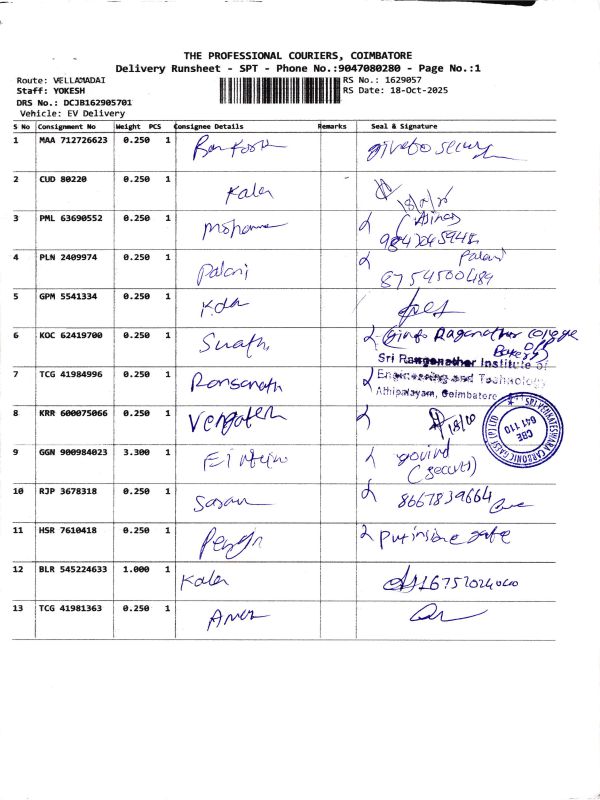 THE PROFESSIONAL COURIERS, COIMBATORE
Delivery Runsheet - SPT - Phone No.:9047080280 - Page No.:1
Route: VELLAMADAI
RS No.: 1629057
Staff: YOKESH
RS Date: 18-Oct-2025
DRS No.: DCJB162905701
Vehicle: EV Delivery
S No Consignment No Weight PCS Consignee Details Remarks Seal & Signature
1 MAA 712726623 0.250 1
2 CUD 80220 0.250 1 Kala
3 PML 63690552 0.250 1
4 PLN 2409974 0.250 1 Palani Palani
8754500489
5 GPM 5541334 0.250 1
6 KOC 62419700 0.250 1
Sri Ranganathar Institute of
7 TCG 41984996 0.250 1
Engineering and Technology
Athipalayam, Coimbatore
8 KRR 600075066 0.250 1 18/10
SRI VENKATESHWARA CARBONIC GASES (P) LTD
CBE
641 110
9 GGN 900984023 3.300 1 govind
10 RJP 3678318 0.250 1 8667839664
11 HSR 7610418 0.250 1 Put inside gate
12 BLR 545224633 1.000 1 Kala
13 TCG 41981363 0.250 1